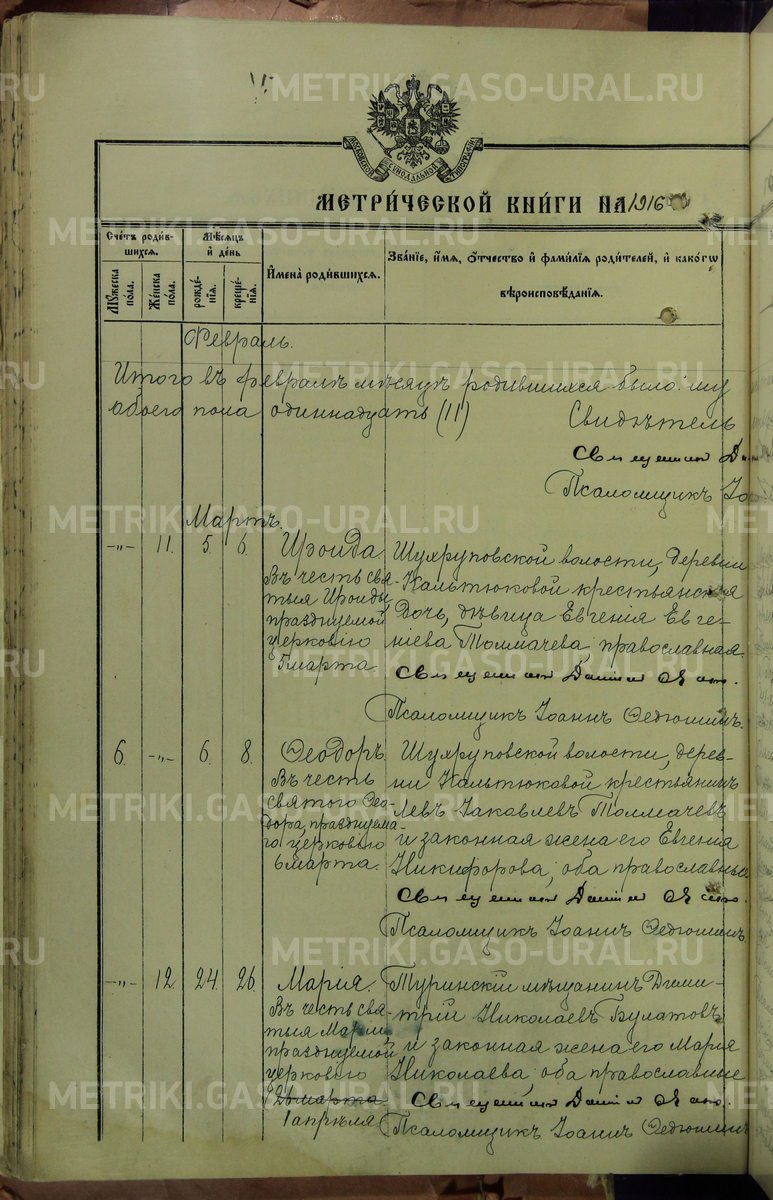 МЕТРИ́ЧЕСКОЙ КНИ́ГИ НА 1916
Сче́тъ роди́в-
шихся.
Мꙋ́жеска по́ла.
Же́нска по́ла.
Мѣ́сяцъ
и҆ де́нь
рожде́-
нїя.
креще́-
нїя.
И҆мена̀ роди́вшихся.
Зва́нїе, и҆́мя, ѻ҆́тчество и҆ фами́лїя роди́телей, и҆ како́гѡ
вѣроисповѣ́данїя.
Февраль.
Итого въ февралѣ мѣсяцѣ родившихся было:
обоего пола одиннадцать (11)
Свидѣтель
Священникъ
Псаломщикъ
Мартъ.
-„- 11. 5. 6.
Ироида
Въ честь свя-
тыя Ироиды
празднуемой
церковію
5 марта
Шухруповской волости, деревни
Кальтюковой крестьянская
дочь, дѣвица Евгенія Евге-
ніева Толмачева, православная
Священникъ
Псаломщикъ Іоаннъ Федюшинъ.
6. -„- 6. 8.
Ѳеодоръ
Въ честь
святого Ѳео-
дора, празднуема-
го церковію
6 марта.
Шухруповской волости, дерев-
ни Кальтюковой крестьянинъ
Левъ Іаковлевъ Толмачевъ
и законная жена его Евгенія
Никифорова, оба православные
Священникъ
Псаломщикъ Іоаннъ Федюшинъ
-„- 12. 24. 26.
Марія.
Въ честь свя-
тыя Маріи
празднуемой
церковію
26 марта
1 апрѣля
Туринскій мѣщанинъ Дими-
трій Николаевъ Булатовъ
и законная жена его Марія
Николаева, оба православные
Священникъ
Псаломщикъ Іоаннъ Федюшинъ
METRIKI.GASO-URAL.RU